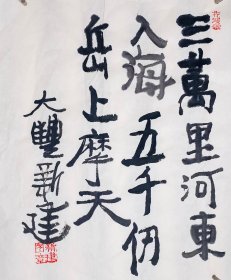 三萬里河東
入海五千仞
岳上摩天
大豐新建